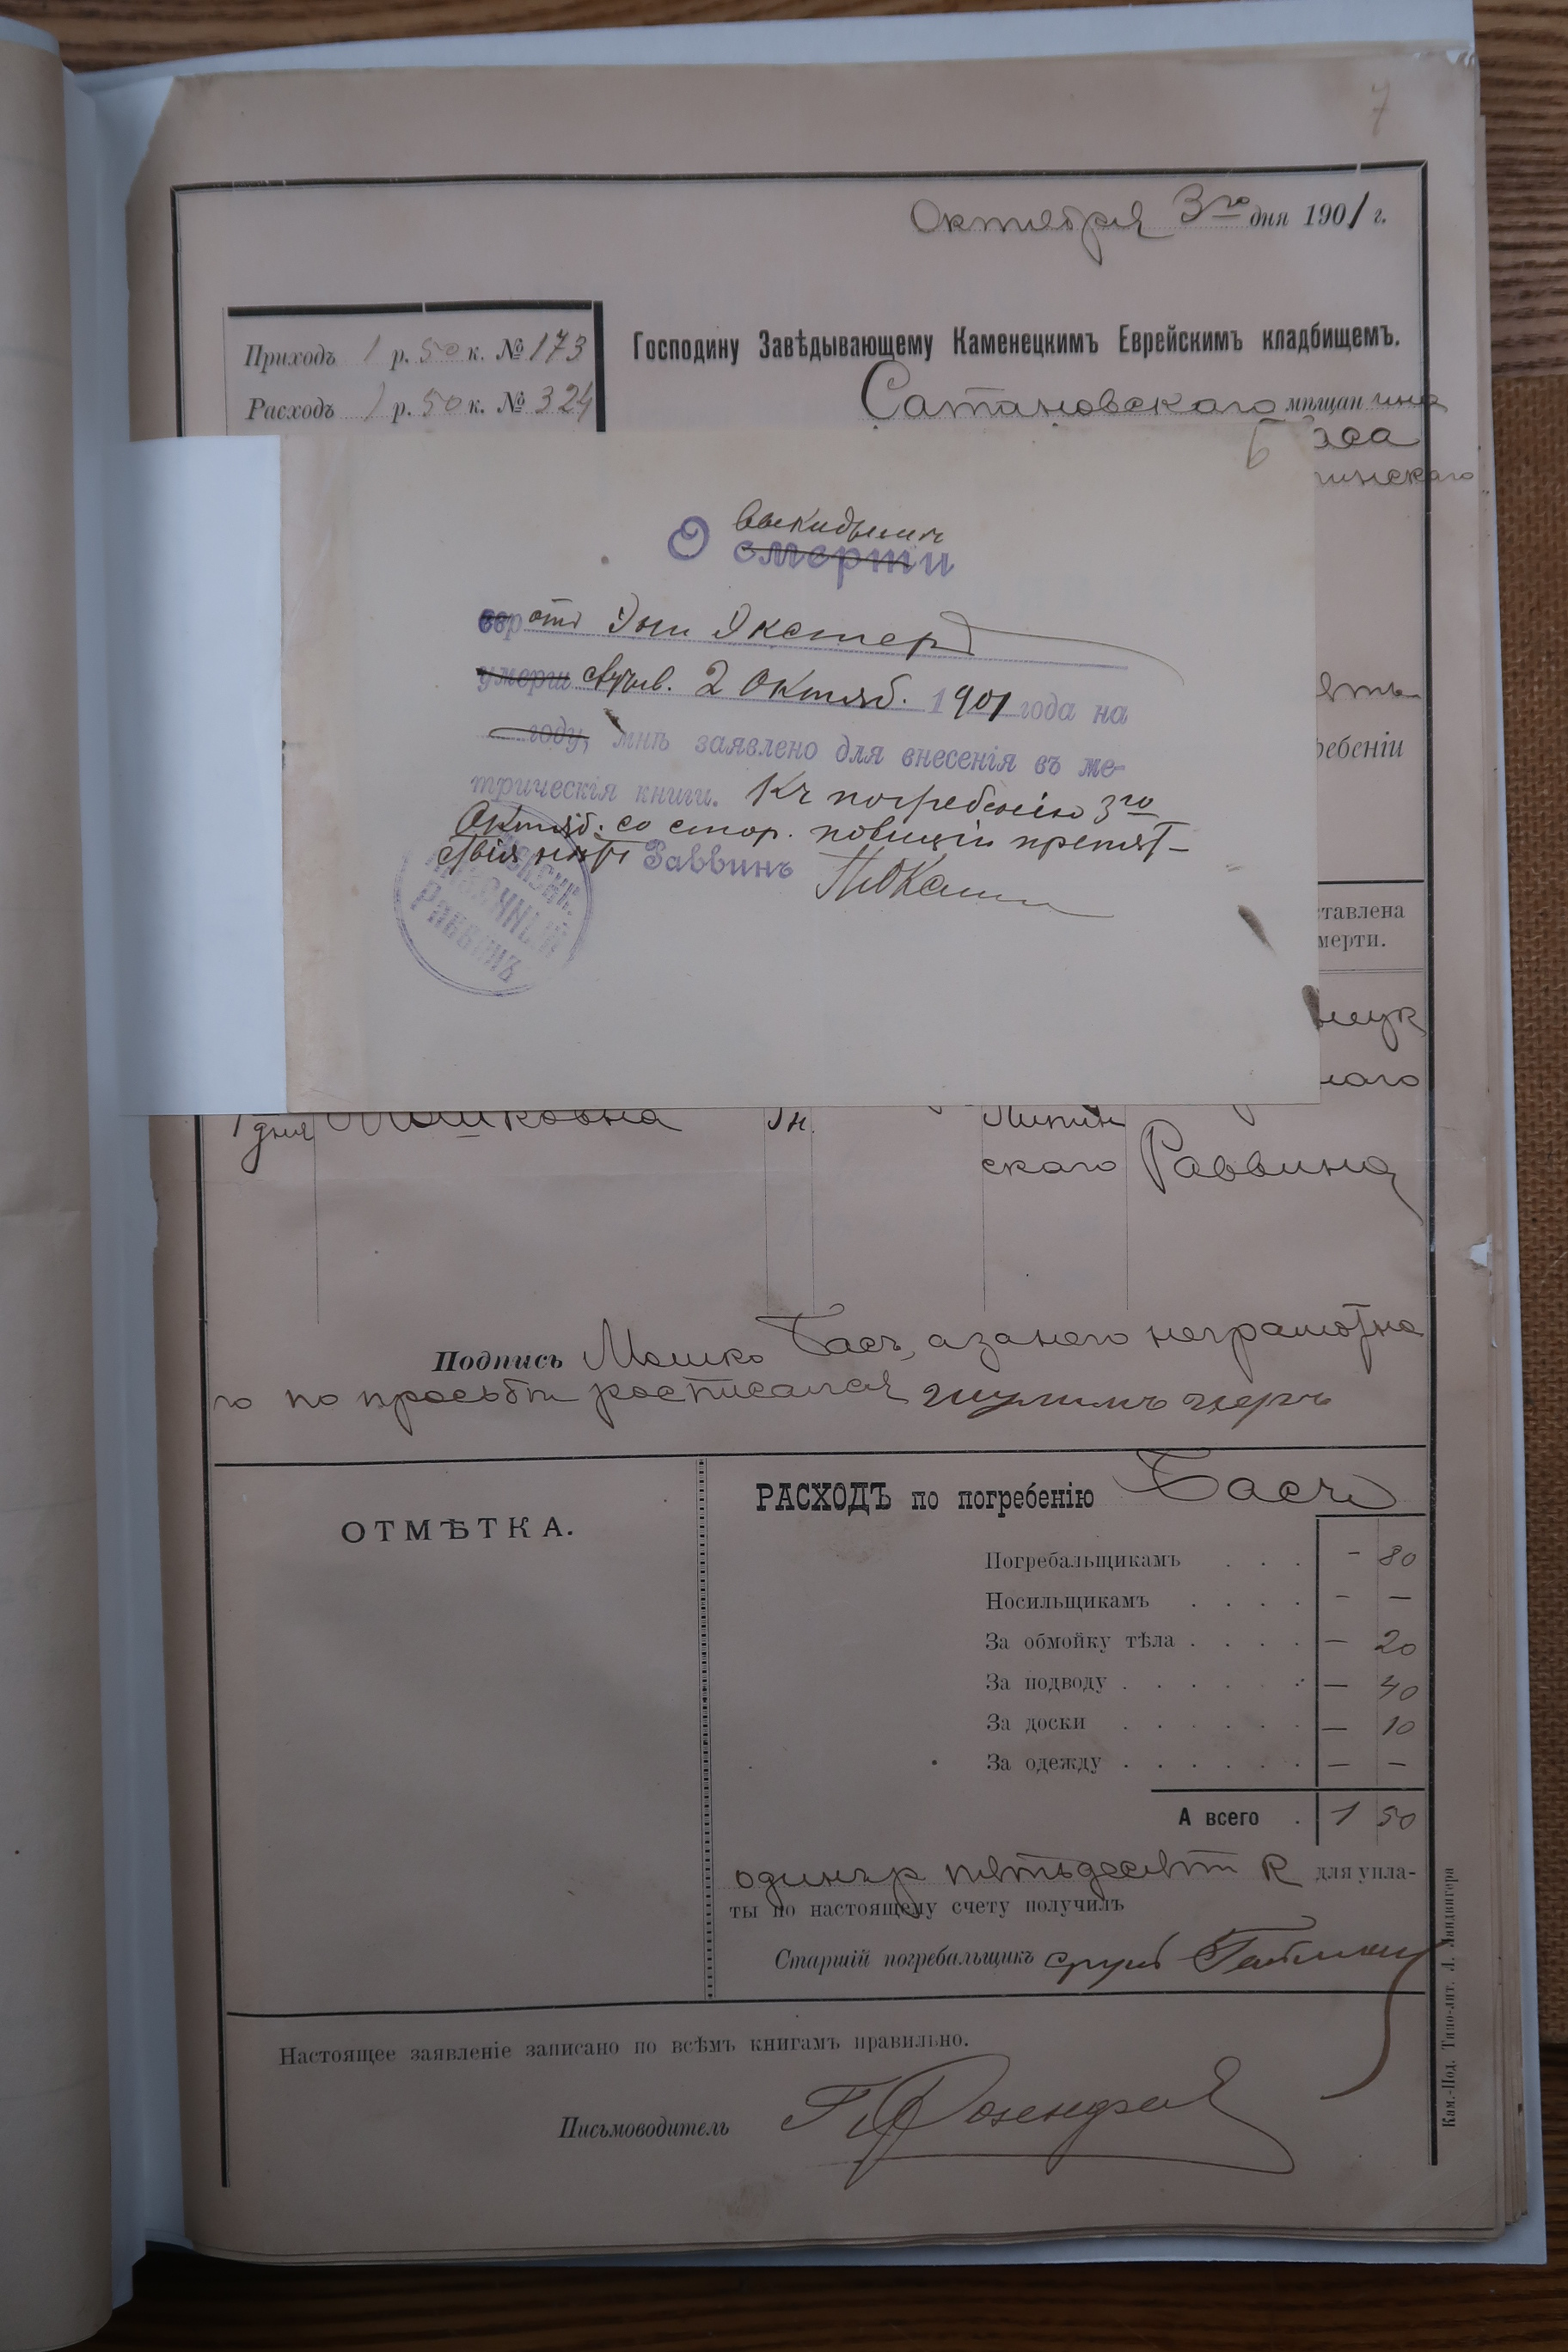 7
Октября 3го дня 1901 г.
Приходъ 1 р. 50 к. № 173
Расходъ 1 р. 50 к. № 324
Господину Завѣдывающему Каменецкимъ Еврейскимъ кладбищемъ.
Сатановскаго мѣщанина
Баса
инскаго
6
выкидыши
О смерти
евр отъ Эни Экстер
умерш случив. 2 Октяб. 1901 года на
году, мнѣ заявлено для внесенія въ ме-
трическія книги. Къ погребенію 3го
Октяб. со стор. полиціи препят-
ствія нѣтъ Раввинъ
Раввинъ
ять
ребеніи
ставлена
мерти.
наго
1 дня Мошковна 1 н.
скаго Раввина
Подпись Мошко Басъ, а за него неграмотна
го по просьбѣ росписался
ОТМѢТКА.
РАСХОДЪ по погребенію Басъ
Погребальщикамъ . . . - 80
Носильщикамъ . . . . - —
За обмойку тѣла . . . . — 20
За подводу . . . . . . — 40
За доски . . . . . . — 10
За одежду . . . . . . — —
А всего . 1 50
одинъ р пятьдесятъ к для упла-
ты по настоящему счету получилъ
Старшій погребальщикъ сруль
Настоящее заявленіе записано по всѣмъ книгамъ правильно.
Письмоводитель
Кам.-Под. Типо-лит. Л. Ландвигера